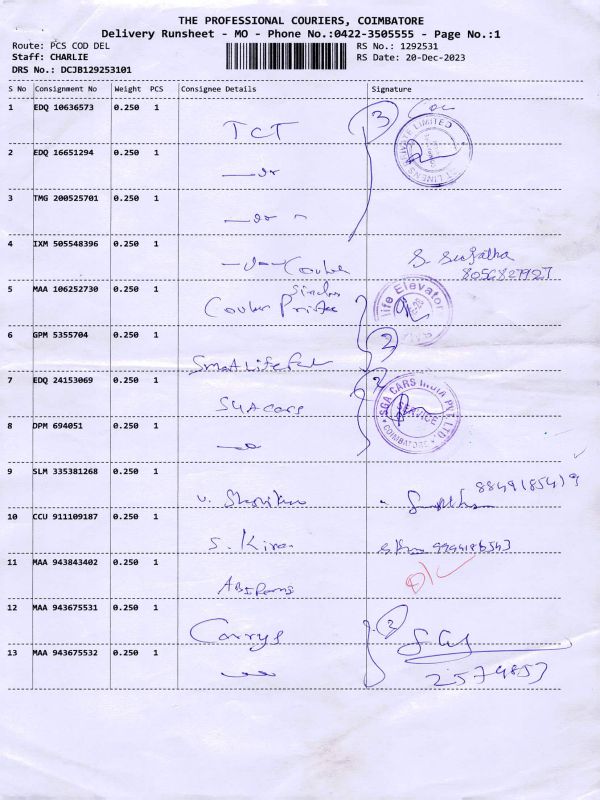 THE PROFESSIONAL COURIERS, COIMBATORE
Delivery Runsheet - MO - Phone No.:0422-3505555 - Page No.:1
Route: PCS COD DEL
RS No.: 1292531
Staff: CHARLIE
RS Date: 20-Dec-2023
DRS No.: DCJB129253101
S No Consignment No Weight PCS Consignee Details Signature
1 EDQ 10636573 0.250 1 TCT 3
PRIVATE LIMITED
2 EDQ 16651294 0.250 1
3 TMG 200525701 0.250 1
4 IXM 505548396 0.250 1 S. Sujatha
8056827927
5 MAA 106252730 0.250 1
life Elevator
6 GPM 5355704 0.250 1 Smart life 2
7 EDQ 24153069 0.250 1 SGA cars 2
SGA CARS INDIA PVT LTD. SERVICE COIMBATORE
8 DPM 694051 0.250 1
9 SLM 335381268 0.250 1 V.
8849185419
10 CCU 911109187 0.250 1 S. Kiran 9994186543
11 MAA 943843402 0.250 1
12 MAA 943675531 0.250 1 2
13 MAA 943675532 0.250 1
2574853